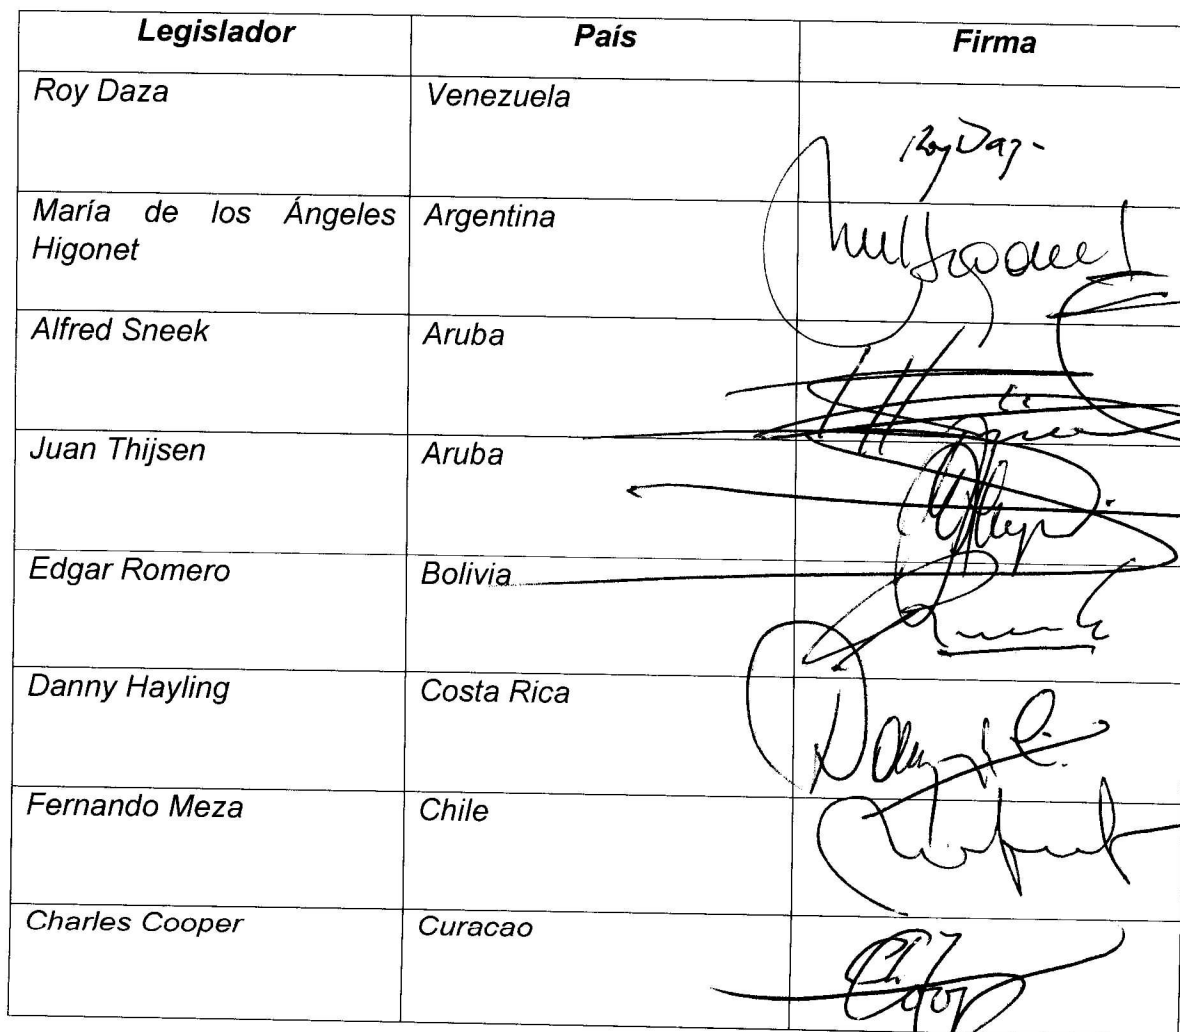 Legislador País Firma
Roy Daza Venezuela
Roy Daza
María de los Ángeles Argentina
Higonet
Alfred Sneek Aruba
Juan Thijsen Aruba
Edgar Romero Bolivia
Danny Hayling Costa Rica
Fernando Meza Chile
Charles Cooper Curacao